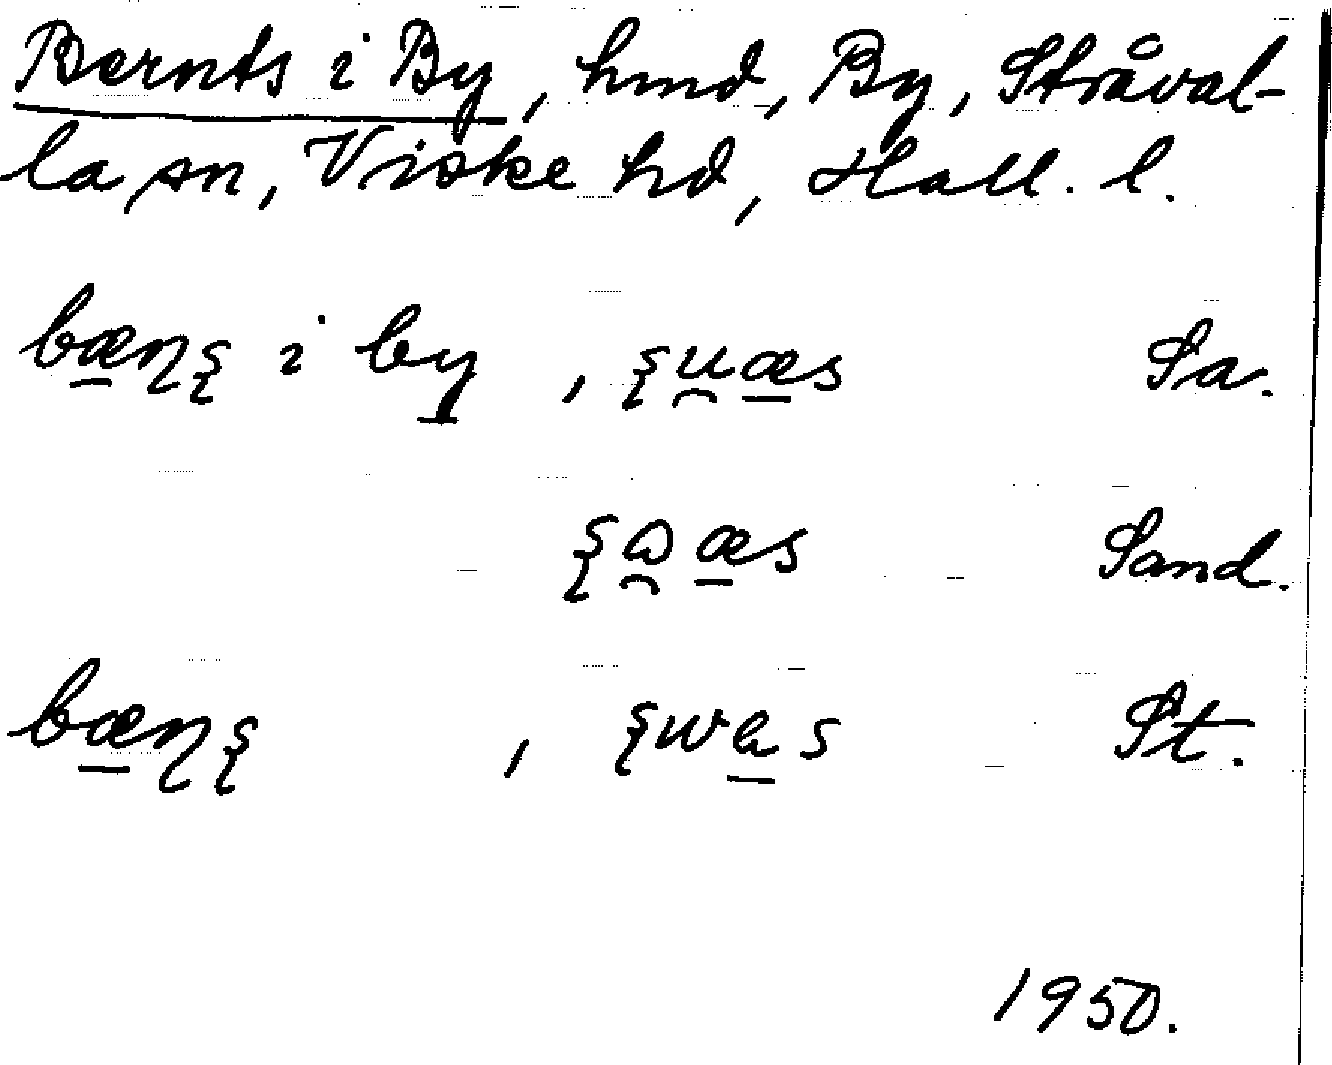 Bernts i By, hmd, By, Stråval-
la sn, Viske hd, Hall. l.
bæɳʂ i by , ʂu̯æs Sa.
ʂɷ̯æs Sand.
bæɳʂ , St.
1950.